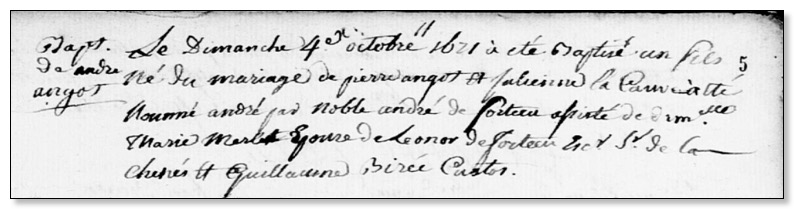 Bapt.
De andre
angot
Le Dimanche 4e octobre 1621 à été Baptisé un fils
5
Né du mariage de pierre angot et Julienne la Cauve a été
Nommé andré par Noble andré de sorteu assisté de dmlle
Marie Merlet Epouse de Leonor de sorteu Escr Sr de la
chenés et Guillaume Birée Custos.